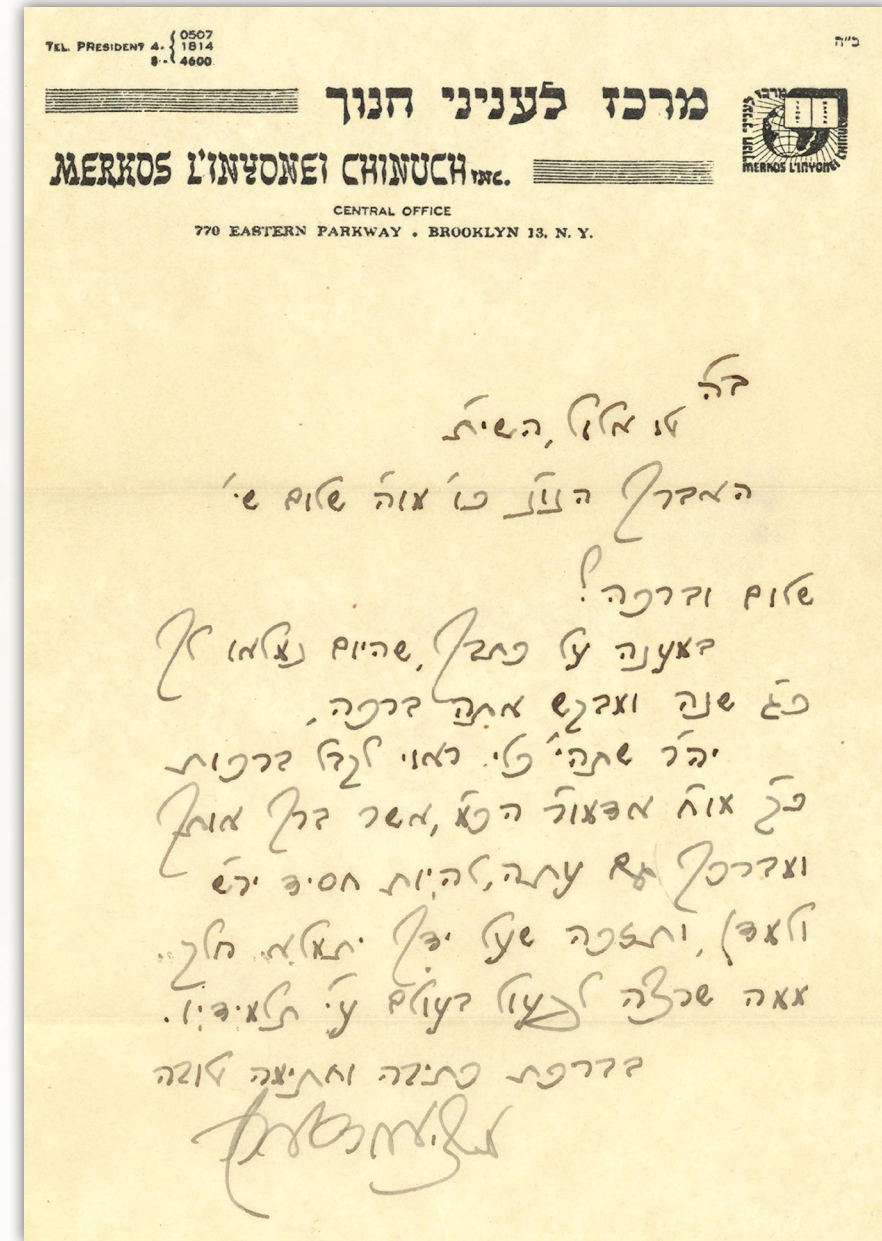 TEL. PRESIDENT 4- { 0507
1814
8-- 4600
ב"ה
מרכז לעניני חנוך
MERKOS L'INYONEI CHINUCH INC.
מרכז לעניני חנוך
MERKOS L'INYONEI CHINUCH
CENTRAL OFFICE
770 EASTERN PARKWAY . BROOKLYN 13. N. Y.
ב"ה
טו אלול, השי"ת
האברך הנו"נ כו' מו"ה שלום שי'
שלום וברכה!
במענה על כתבך, שהיום נמלאו לך
כ"ג שנה ומבקש אתה ברכה,
יה"ר שתהי' כלי ראוי לקבל ברכות
כ"ק מו"ח אדמו"ר הכ"מ, אשר ברך אותך
ומברכך גם עתה, להיות חסיד יר"ש
ולמדן, ותזכה שעל ידך יתמלא חלק
ממה שרצה לפעול בעולם ע"י תלמידיו.
בברכת כתיבה וחתימה טובה